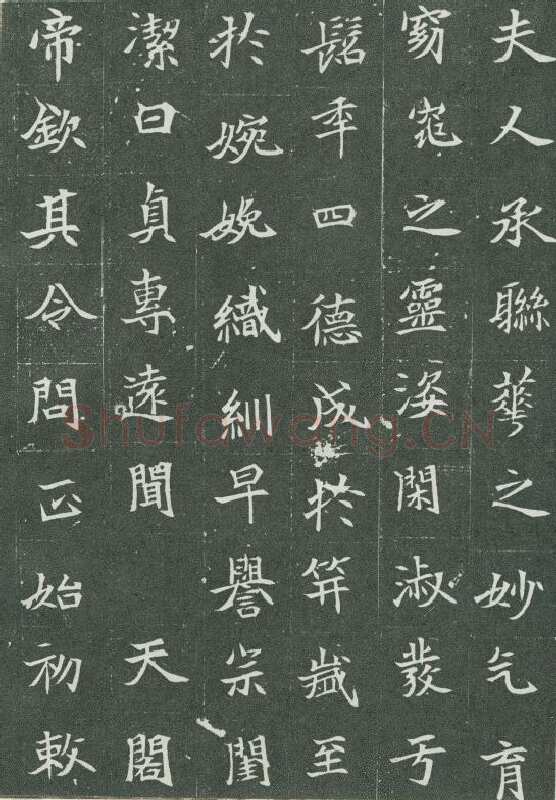 夫人承聯華之妙气育
窈窕之靈姿閑淑發于
髫年四德成扵笄歲至
扵婉娩織紃早譽宗閨
潔曰貞專遠聞 天閣
帝欽其令問正始初敕
Shufawang.CN